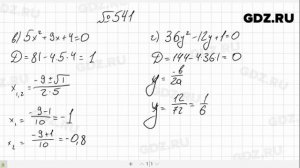 GDZ.RU
№541
в) 5x²+9x+4=0
D=81-4·5·4=1
x₁,₂ = (-9±√1)/(2·5)
x₁ = (-9-1)/10 = -1
x₂ = (-9+1)/10 = -0,8
г) 36y²-12y+1=0
D=144-4·36·1=0
y = -b/2a
y = 12/72 = 1/6
GDZ.RU